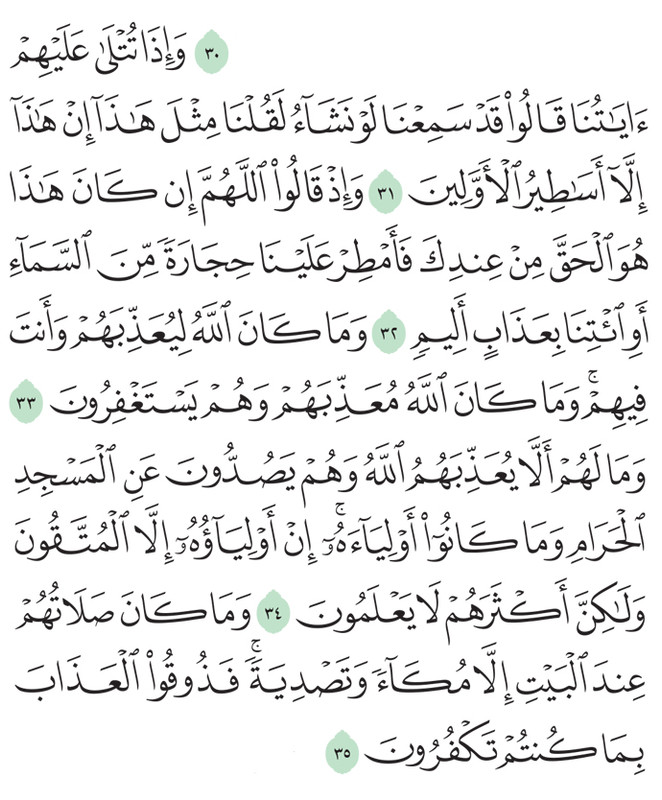 ٣٠ وَإِذَا تُتْلَىٰ عَلَيْهِمْ
ءَايَٰتُنَا قَالُوا۟ قَدْ سَمِعْنَا لَوْ نَشَآءُ لَقُلْنَا مِثْلَ هَٰذَآ إِنْ هَٰذَآ
إِلَّآ أَسَٰطِيرُ ٱلْأَوَّلِينَ ٣١ وَإِذْ قَالُوا۟ ٱللَّهُمَّ إِن كَانَ هَٰذَا
هُوَ ٱلْحَقَّ مِنْ عِندِكَ فَأَمْطِرْ عَلَيْنَا حِجَارَةً مِّنَ ٱلسَّمَآءِ
أَوِ ٱئْتِنَا بِعَذَابٍ أَلِيمٍ ٣٢ وَمَا كَانَ ٱللَّهُ لِيُعَذِّبَهُمْ وَأَنتَ
فِيهِمْ ۚ وَمَا كَانَ ٱللَّهُ مُعَذِّبَهُمْ وَهُمْ يَسْتَغْفِرُونَ ٣٣
وَمَا لَهُمْ أَلَّا يُعَذِّبَهُمُ ٱللَّهُ وَهُمْ يَصُدُّونَ عَنِ ٱلْمَسْجِدِ
ٱلْحَرَامِ وَمَا كَانُوٓا۟ أَوْلِيَآءَهُۥٓ ۚ إِنْ أَوْلِيَآؤُهُۥٓ إِلَّا ٱلْمُتَّقُونَ
وَلَٰكِنَّ أَكْثَرَهُمْ لَا يَعْلَمُونَ ٣٤ وَمَا كَانَ صَلَاتُهُمْ
عِندَ ٱلْبَيْتِ إِلَّا مُكَآءً وَتَصْدِيَةً ۚ فَذُوقُوا۟ ٱلْعَذَابَ
بِمَا كُنتُمْ تَكْفُرُونَ ٣٥